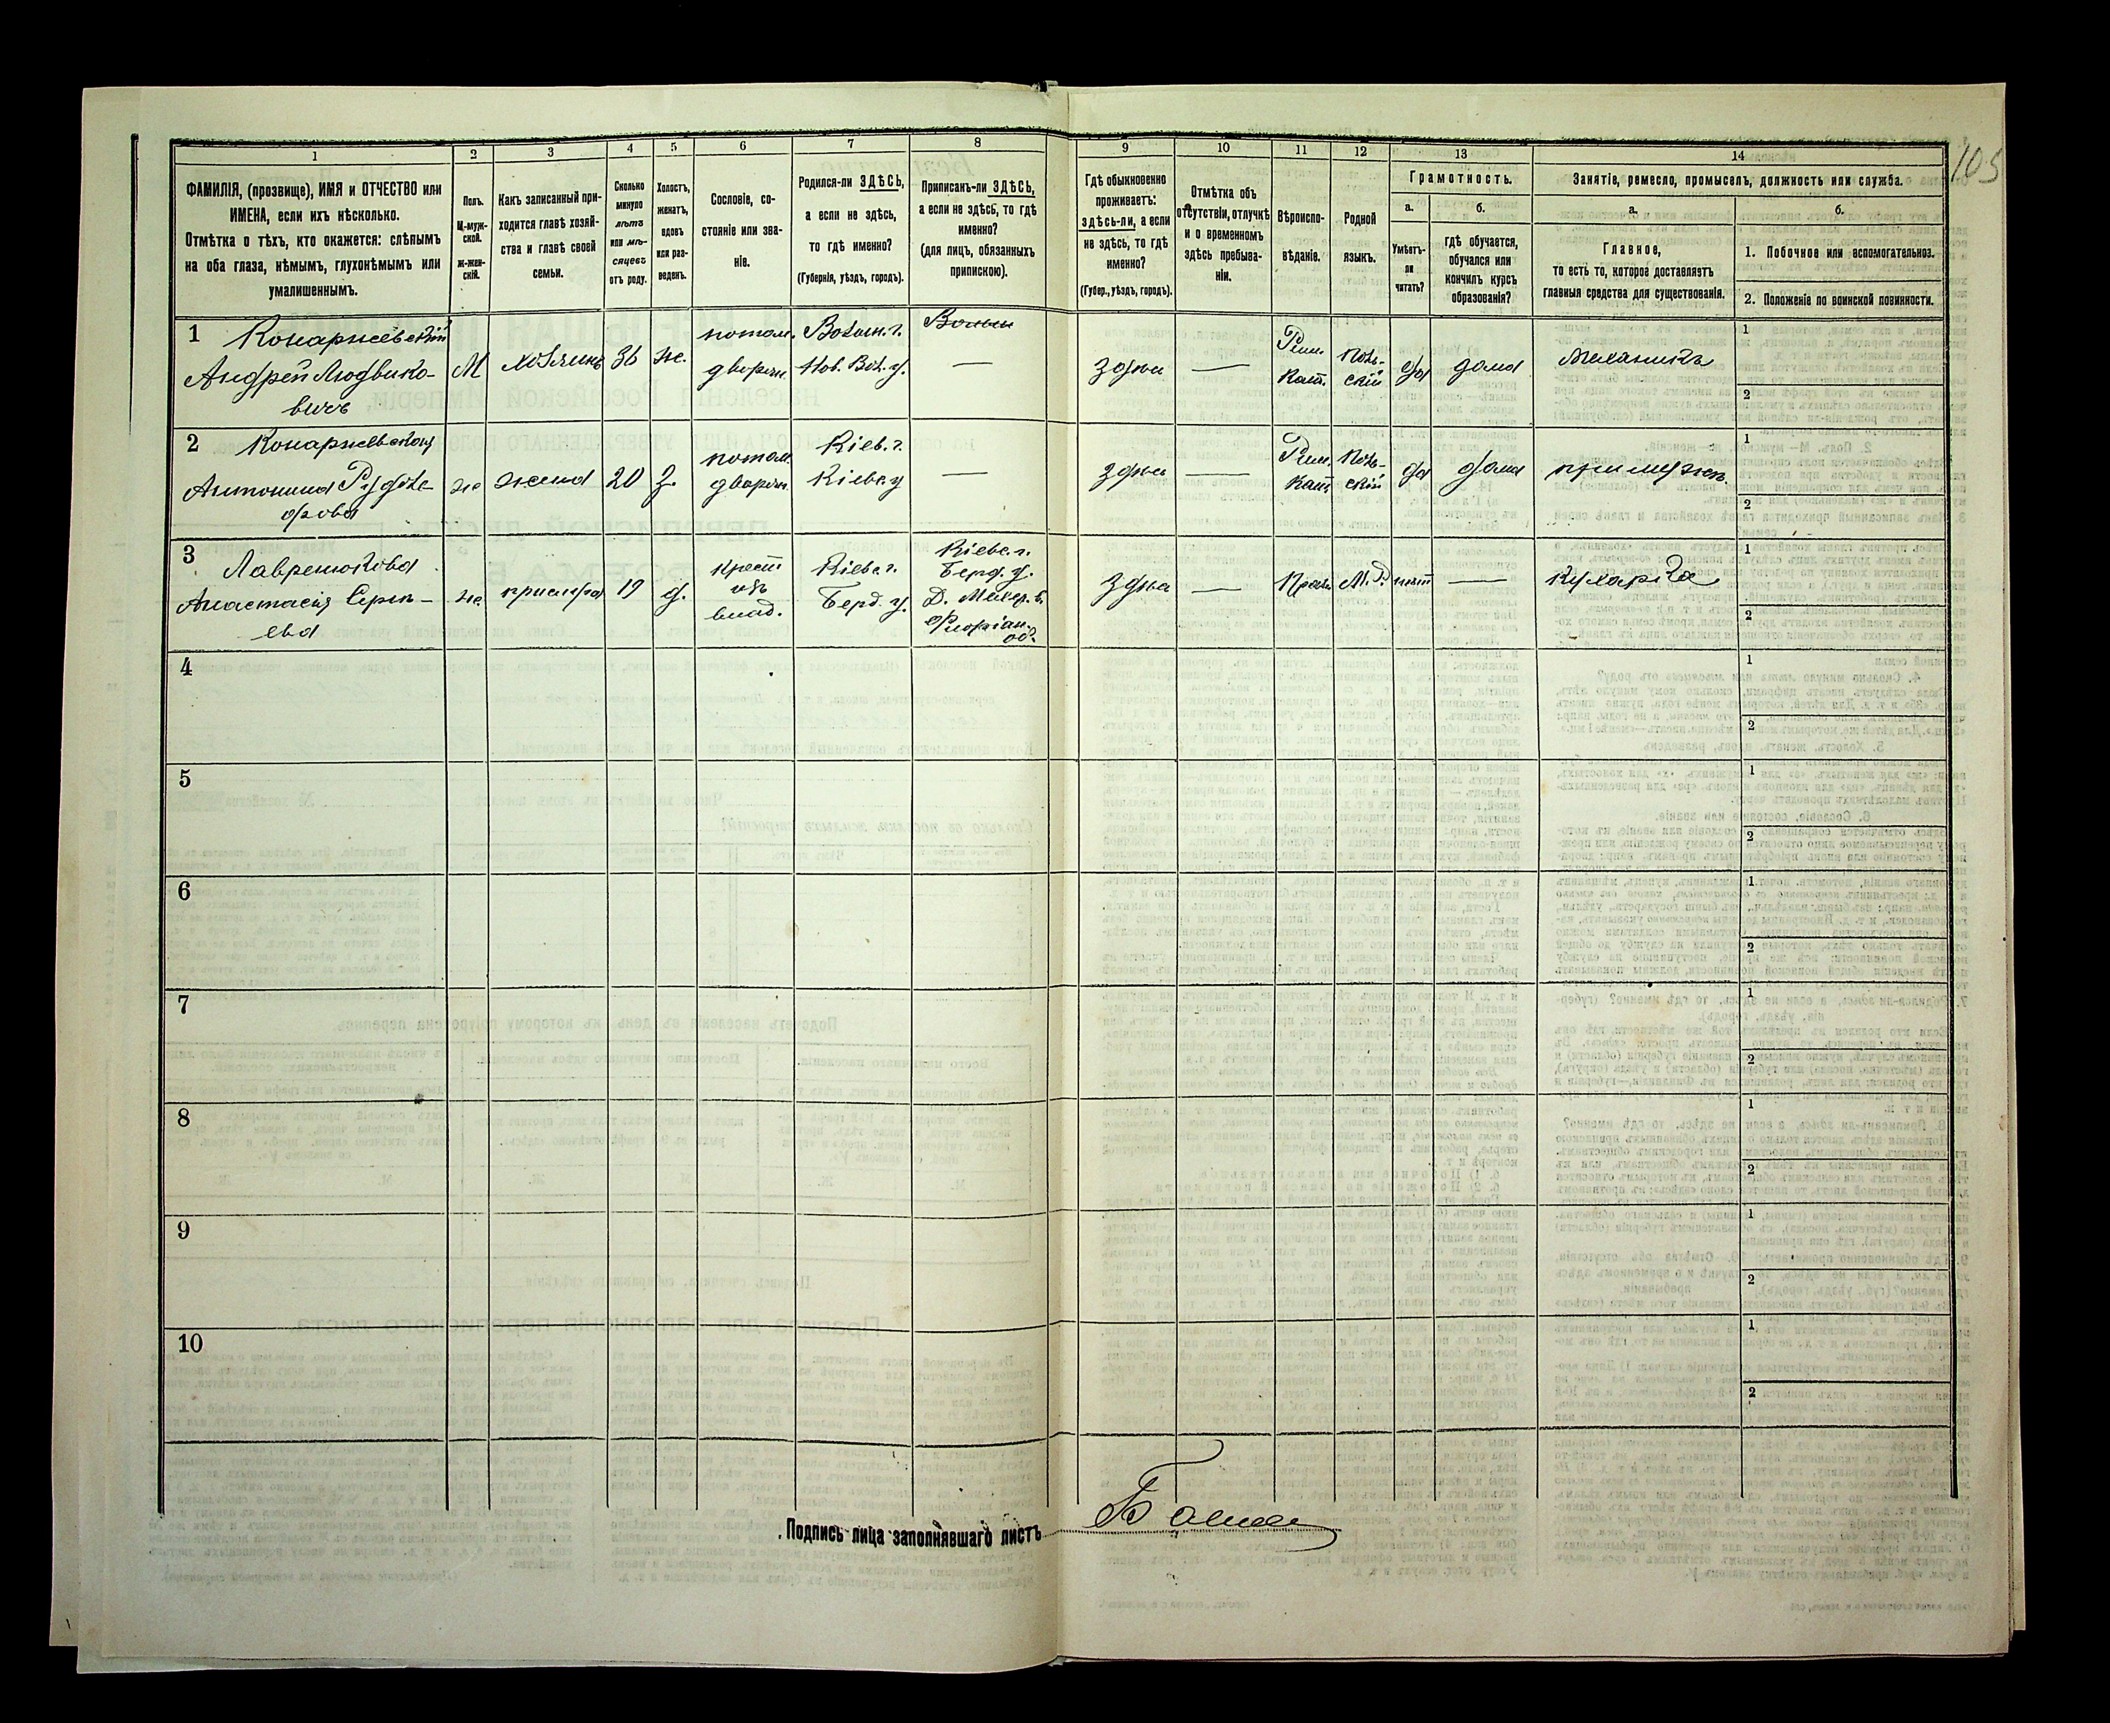 105
1 2 3 4 5 6 7 8 9 10 11 12 13 14
ФАМИЛІЯ, (прозвище), ИМЯ и ОТЧЕСТВО или
ИМЕНА, если ихъ нѣсколько.
Отмѣтка о тѣхъ, кто окажется: слѣпымъ
на оба глаза, нѣмымъ, глухонѣмымъ или
умалишеннымъ.
Полъ.
М-муж-
ской.
ж-жен-
скій.
Какъ записанный при-
ходится главѣ хозяй-
ства и главѣ своей
семьи.
Сколько
минуло
лѣтъ
или мѣ-
сяцевъ
отъ роду.
Холостъ,
женатъ,
вдовъ
или раз-
веденъ.
Сословіе, со-
стояніе или зва-
ніе.
Родился-ли ЗДѢСЬ,
а если не здѣсь,
то гдѣ именно?
(Губернія, уѣздъ, городъ).
Приписанъ-ли ЗДѢСЬ,
а если не здѣсь, то гдѣ
именно?
(для лицъ, обязанныхъ
припискою).
Гдѣ обыкновенно
проживаетъ:
здѣсь-ли, а если
не здѣсь, то гдѣ
именно?
(Губер., уѣздъ, городъ).
Отмѣтка объ
отсутствіи, отлучкѣ
и о временномъ
здѣсь пребыва-
ніи.
Вѣроиспо-
вѣданіе.
Родной
языкъ.
Грамотность.
а.
Умѣетъ-
ли
читать?
б.
гдѣ обучается,
обучался или
кончилъ курсъ
образованія?
Занятіе, ремесло, промыселъ, должность или служба.
а.
Главное,
то есть то, которое доставляетъ
главныя средства для существованія.
б.
1. Побочное или вспомогательное.
2. Положеніе по воинской повинности.
1 Конаржевскій
Андрей Людвико-
вичъ
М хозяинъ 36 же.
потом.
дворян.
Волын. г.
Нов. Вол. у.
Волын
—
здѣсь —
Рим.
Кат.
Поль-
скій
да дома механикъ
1
2
2 Конаржевская
Антонина Рудоль-
фова
же жена 20 з.
потом.
дворян.
Кіев. г.
Кіевс. у
—
здѣсь —
Рим.
Кат.
Поль-
скій
да дома при мужѣ
1
2
3 Лавренюкова
Анастасія Серги-
ева
же. прислуга 19 д.
крест
изъ
влад.
Кіевс. г.
Берд. у.
Кіевс. г.
Берд. у.
здѣсь — Прав. М.Р. нѣт — кухарка
1
2
4
1
2
5
1
2
6
1
2
7
1
2
8
1
2
9
1
2
10
1
2
Подпись лица заполнявшаго листъ